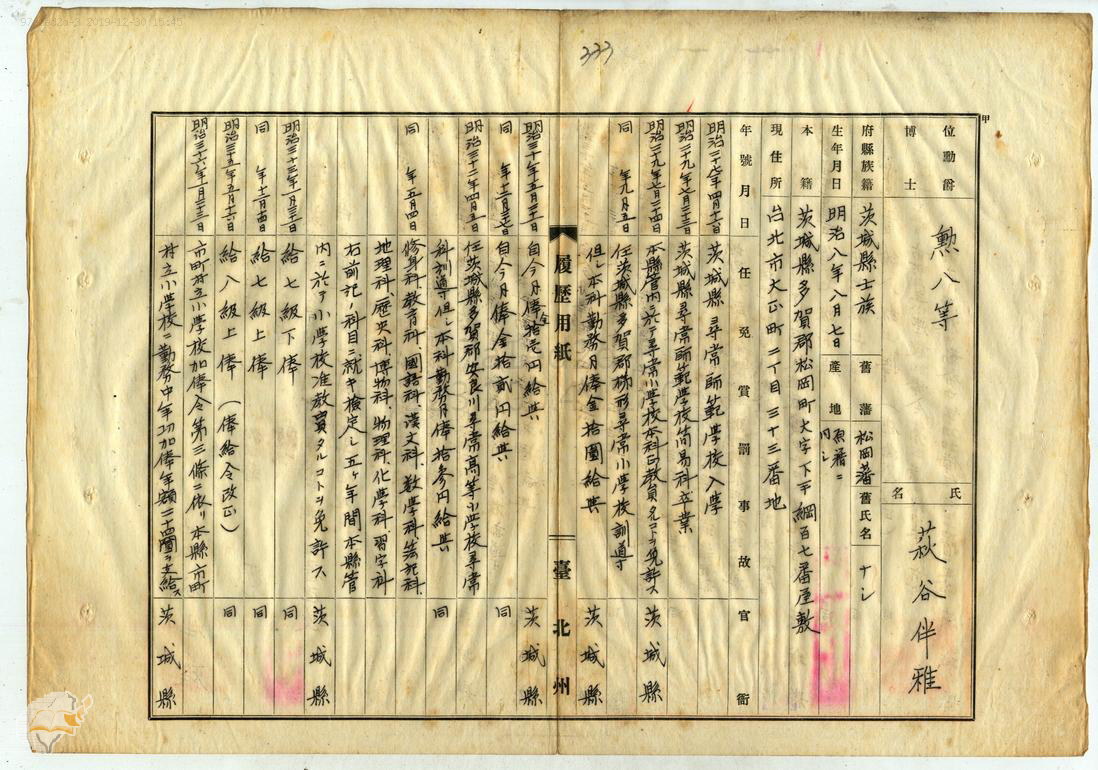 333
甲
位勳爵
博士
勲八等
氏名
萩谷伴雅
府縣族籍
茨城縣士族
舊藩
松岡藩
舊氏名
ナシ
生年月日
明治八年八月七日
產地
原籍ニ同シ
本籍
茨城縣多賀郡松岡町大字下手綱百七番屋敷
現住所
台北市大正町二丁目三十三番地
年號月日
任免賞罰事故
官衙
明治二十七年四月十六日
茨城縣尋常師範學校入學
明治二十九年七月二十三日
茨城縣尋常師範學校簡易科卒業
明治二十九年七月二十四日
本縣管内ニ於テ尋常小學校本科正教員タルコトヲ免許ス
茨城縣
同 年九月五日
任茨城縣多賀郡梯形尋常小學校訓導
但シ本科勤務月俸金拾圓給與
茨城縣
履歷用紙
臺北州
明治三十年五月三十日
自今月俸金拾壱円給與
茨城縣
同 年十二月二十六日
自今月俸金拾貳円給與
同
明治三十二年四月五日
任茨城縣多賀郡安良川尋常高等小學校尋常
科訓導但シ本科勤務月俸拾参円給與
同
同 年五月四日
修身科、教育科、國語科、漢文科、數學科、簿記科、
地理科、歷史科、博物科、物理科、化學科、習字科
右前記ノ科目ニ就キ檢定シ五ヶ年間本縣管
内ニ於テ小學校准教員タルコトヲ免許ス
茨城縣
明治三十三年一月三十一日
給七級下俸
同
同 年十二月十四日
給七級上俸
同
明治三十五年五月十六日
給八級上俸 （俸給令改正）
同
明治三十六年一月三十三日
市町村立小學校加俸令第三條ニ依リ本縣市町
村立小學校ニ勤務中年功加俸年額二十四圓ヲ支給ス
茨城縣